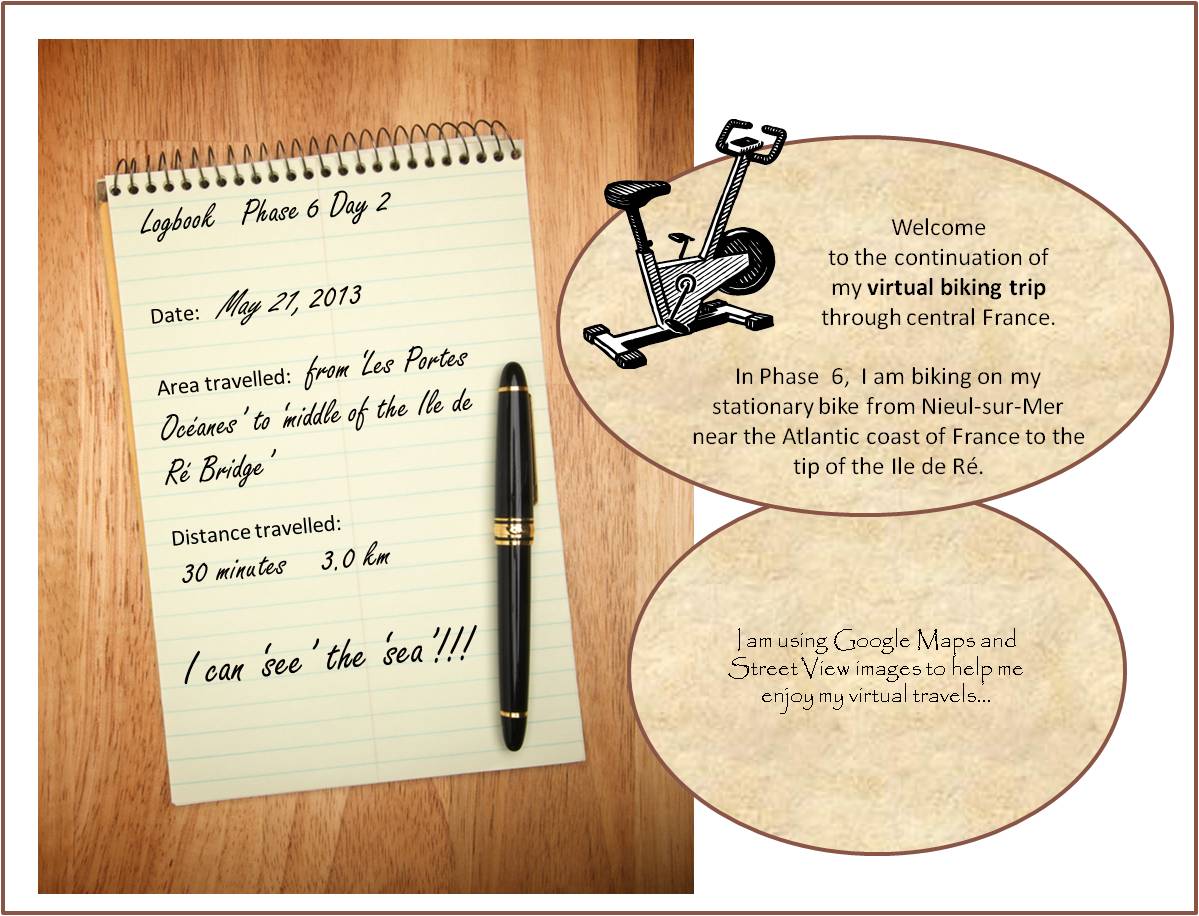 Logbook Phase 6 Day 2
Date: May 21, 2013
Area travelled: from 'Les Portes
Océanes' to 'middle of the Ile de
Ré Bridge'
Distance travelled:
30 minutes 3.0 km
I can 'see' the 'sea'!!!
Welcome
to the continuation of
my virtual biking trip
through central France.
In Phase 6, I am biking on my
stationary bike from Nieul-sur-Mer
near the Atlantic coast of France to the
tip of the Ile de Ré.
I am using Google Maps and
Street View images to help me
enjoy my virtual travels...